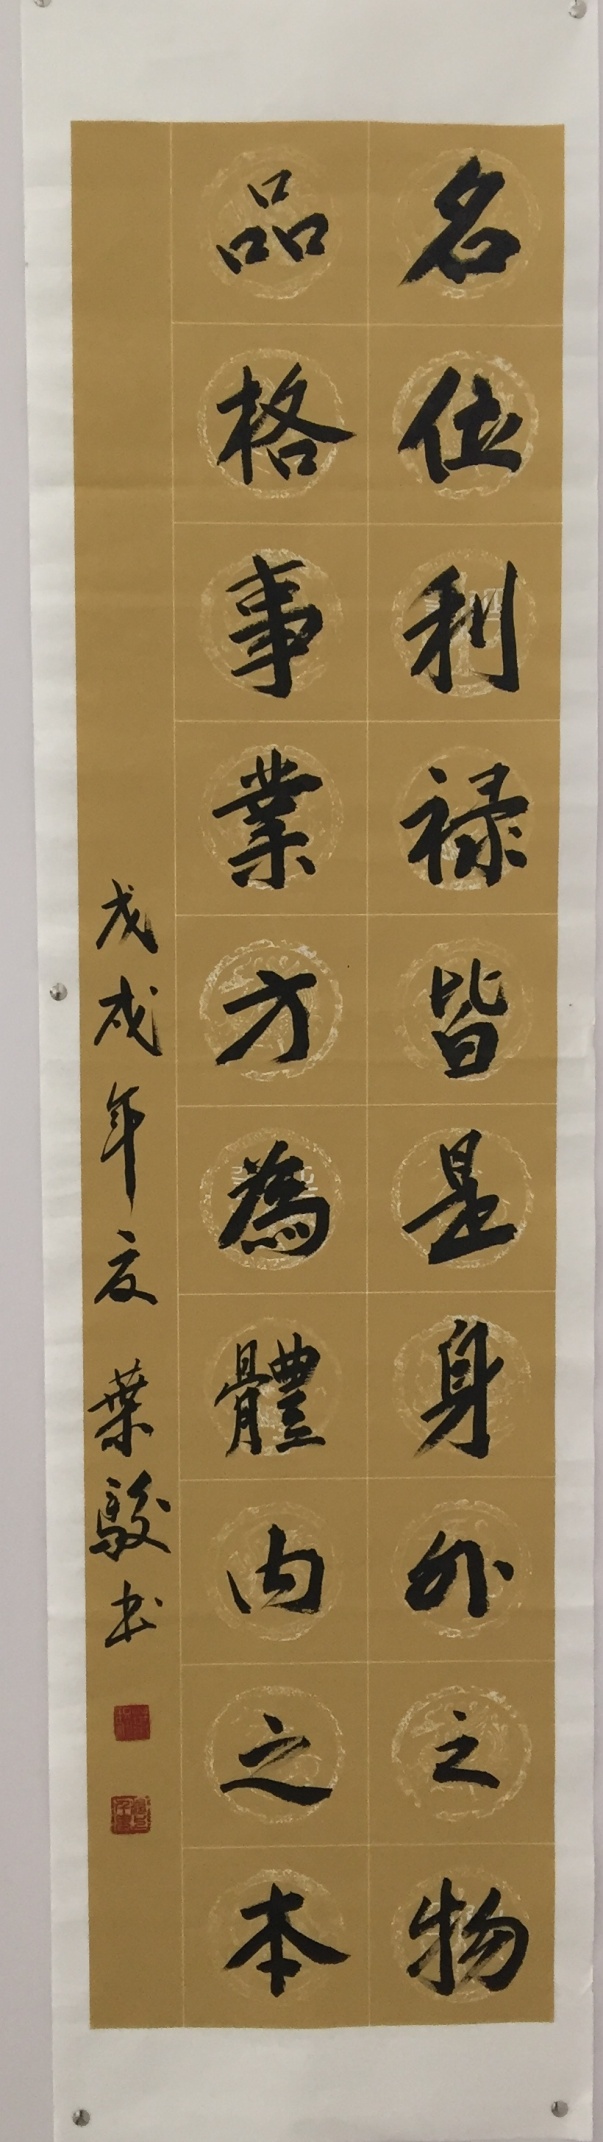 名位利禄皆是身外之物
品格事業方為體内之本
戊戌年夏葉駿书